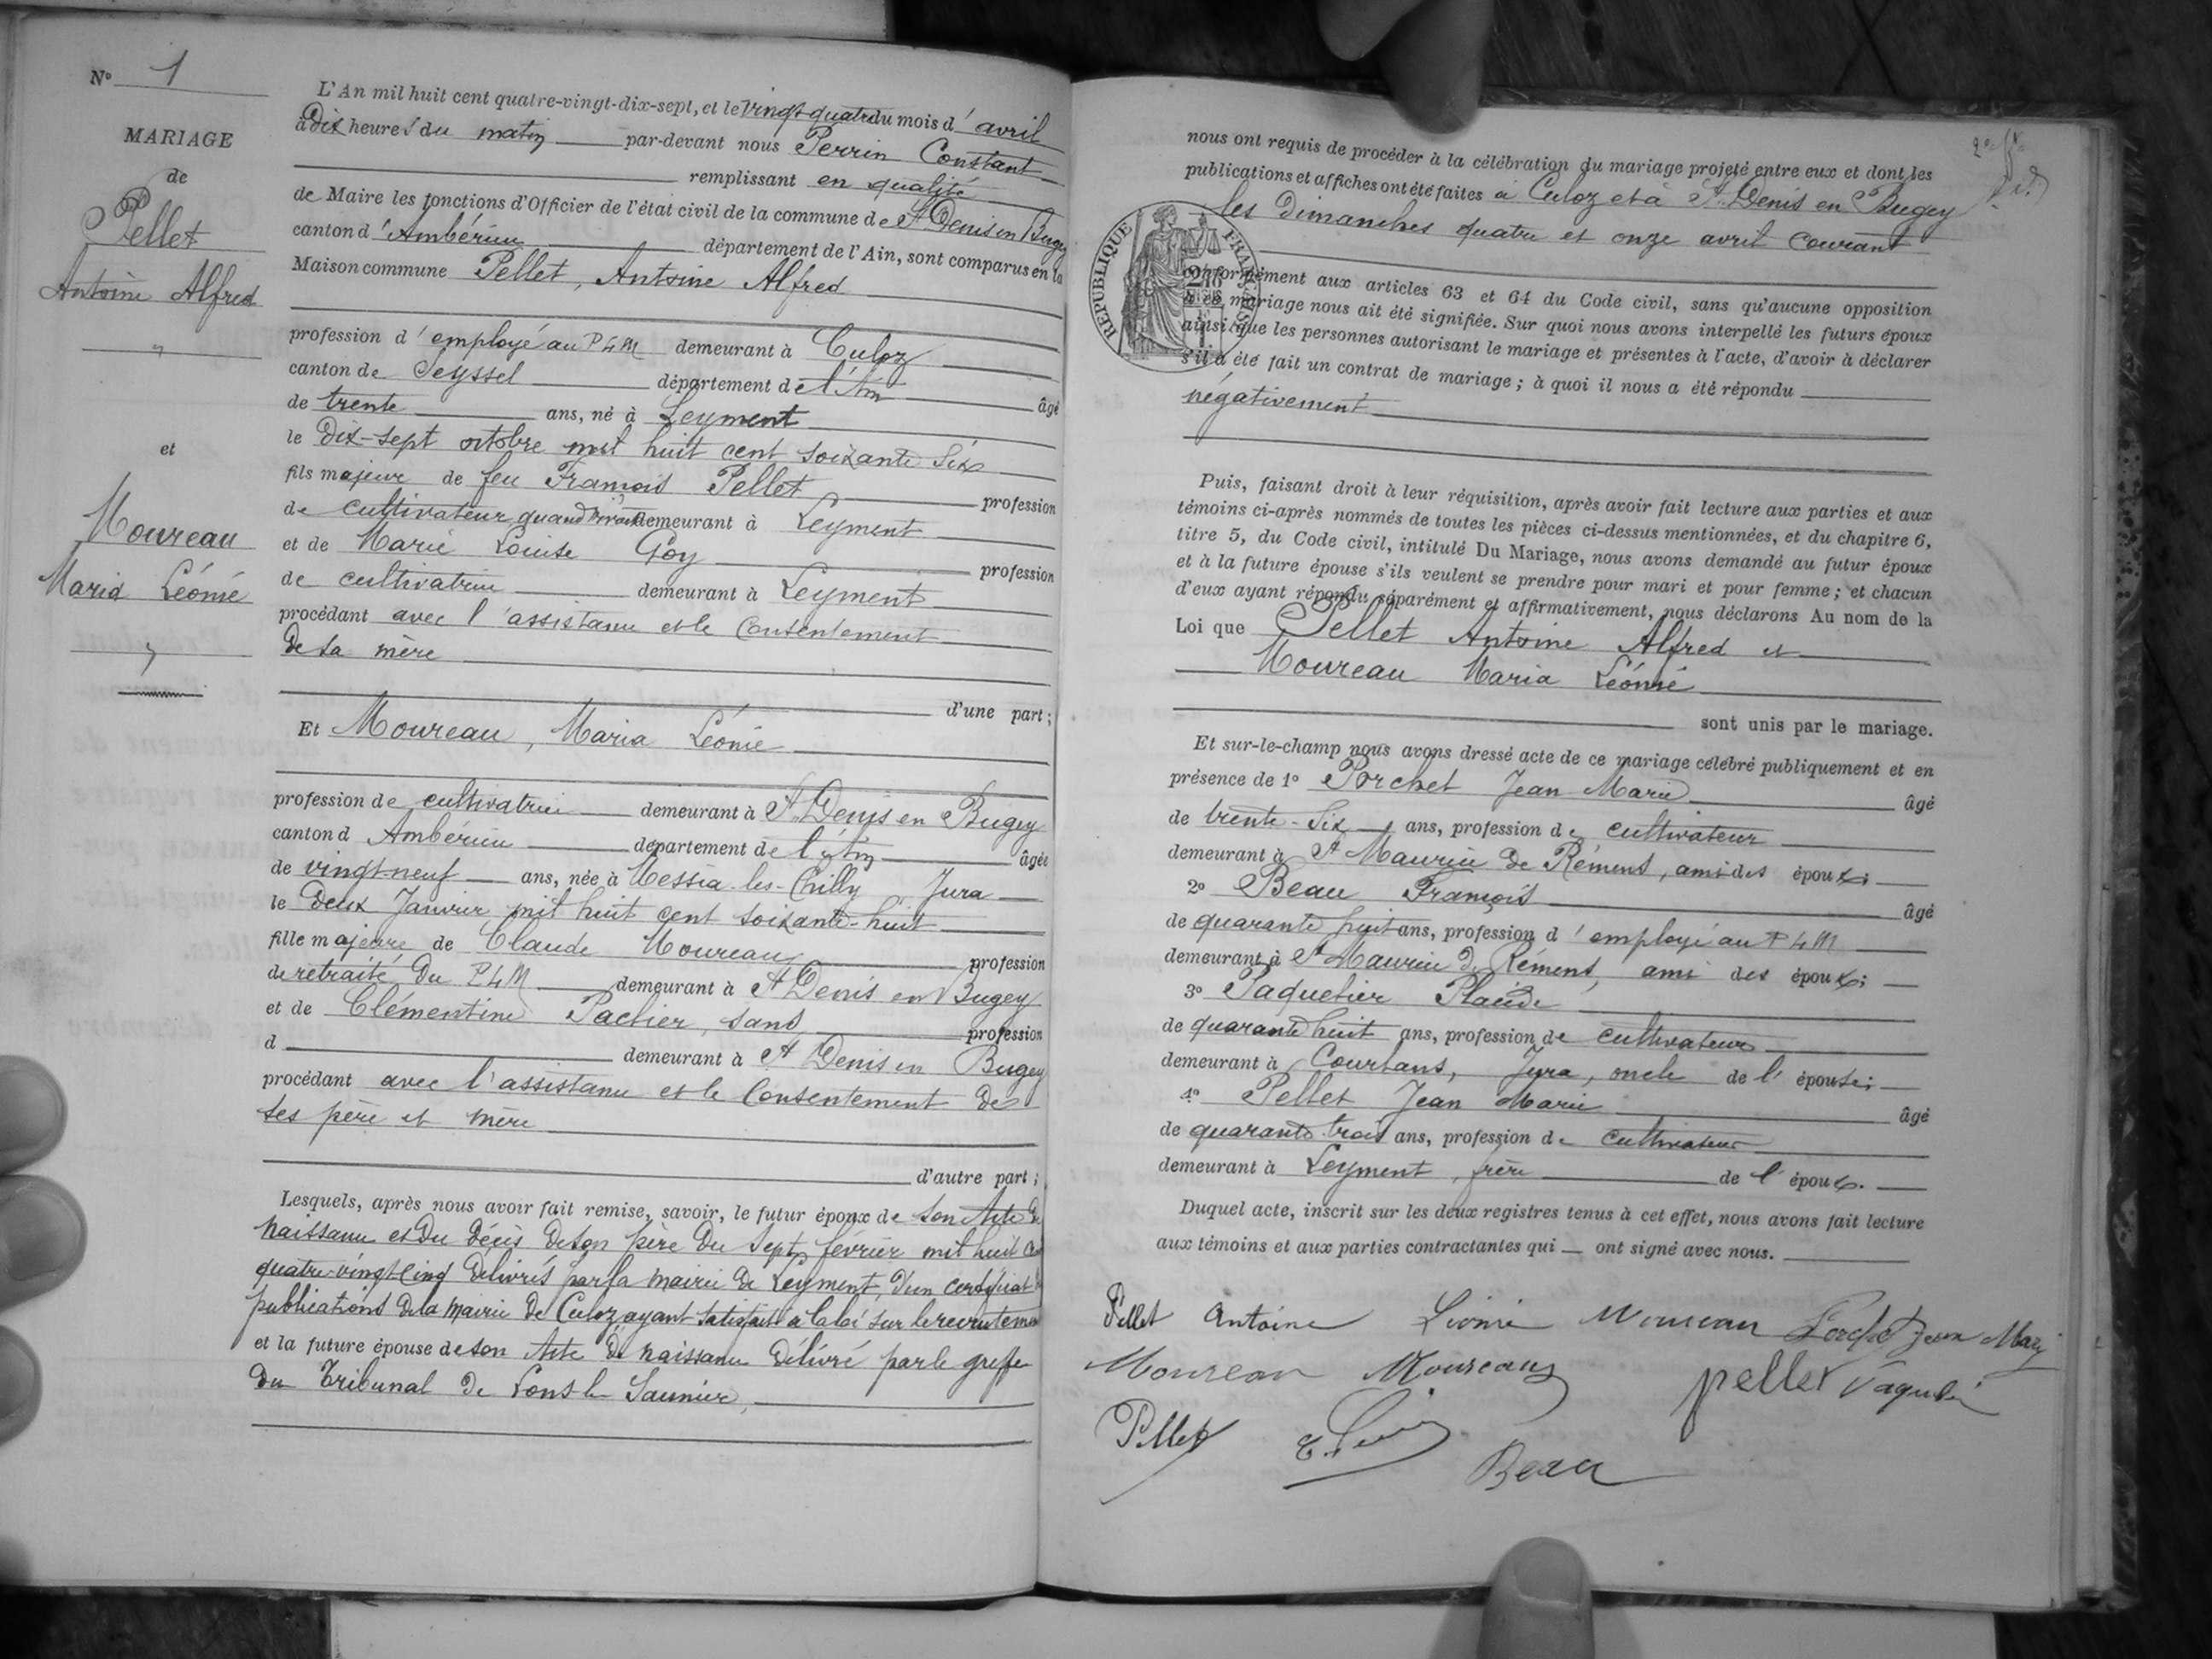 N° 1
MARIAGE
de
Pellet
Antoine Alfred
et
Moureau
Maria Léonie
L'An mil huit cent quatre-vingt-dix-sept, et le vingt-quatre du mois d'avril
à Dix heures du matin par-devant nous Perrin Constant
remplissant en qualité
de Maire les fonctions d'Officier de l'état civil de la commune de St Denis en Bugey
canton d'Ambérieu département de l'Ain, sont comparus en la
Maison commune Pellet, Antoine Alfred
profession d'employé au PLM demeurant à Culoz
canton de Seyssel département de l'Ain âgé
de trente ans, né à Leyment
le Dix-sept octobre mil huit cent soixante Six
fils majeur de feu François Pellet profession
de cultivateur quand vivait demeurant à Leyment
et de Marie Louise Goy profession
de cultivatrice demeurant à Leyment
procédant avec l'assistance et le Consentement
De sa mère
d'une part;
Et Moureau, Maria Léonie
profession de cultivatrice demeurant à St Denis en Bugey
canton d Ambérieu département de l'Ain âgée
de vingt-neuf ans, née à Messia-les-Chilly Jura
le Deux Janvier mil huit cent soixante-huit
fille majeure de Claude Moureau profession
de retraité du PLM demeurant à St Denis en Bugey
et de Clémentine Pactier, sans profession
d demeurant à St Denis en Bugey
procédant avec l'assistance et le Consentement de
ses père et mère
d'autre part;
Lesquels, après nous avoir fait remise, savoir, le futur époux de son Acte de
naissance et Du Décès De son père Du Sept février mil huit cent
quatre-vingt-cinq Délivrés par la mairie de Leyment, D'un certificat de
publications De la mairie De Culoz ayant satisfait à la loi sur le recrutement
et la future épouse de son Acte De naissance Délivré par le greffe
Du Tribunal De Lons le Saunier,
nous ont requis de procéder à la célébration du mariage projeté entre eux et dont les
publications et affiches ont été faites à Culoz et à St Denis en Bugey
les Dimanches quatre et onze avril courant
RÉPUBLIQUE FRANÇAISE
conformément aux articles 63 et 64 du Code civil, sans qu'aucune opposition
à ce mariage nous ait été signifiée. Sur quoi nous avons interpellé les futurs époux
ainsi que les personnes autorisant le mariage et présentes à l'acte, d'avoir à déclarer
s'il a été fait un contrat de mariage; à quoi il nous a été répondu
négativement
Puis, faisant droit à leur réquisition, après avoir fait lecture aux parties et aux
témoins ci-après nommés de toutes les pièces ci-dessus mentionnées, et du chapitre 6,
titre 5, du Code civil, intitulé Du Mariage, nous avons demandé au futur époux
et à la future épouse s'ils veulent se prendre pour mari et pour femme; et chacun
d'eux ayant répondu séparément et affirmativement, nous déclarons Au nom de la
Loi que Pellet Antoine Alfred et
Moureau Maria Léonie
sont unis par le mariage.
Et sur-le-champ nous avons dressé acte de ce mariage célébré publiquement et en
présence de 1° Porchet Jean Marie âgé
de trente-Six ans, profession de cultivateur
demeurant à St Maurice de Rémens, ami des époux;
2° Beau François âgé
de quarante huit ans, profession d'employé au PLM
demeurant à St Maurice de Rémens, ami des époux;
3° Paquetier Placide
de quarante huit ans, profession de cultivateur
demeurant à Courbans, Jura, oncle de l'épouse;
4° Pellet Jean Marie âgé
de quarante trois ans, profession de cultivateur
demeurant à Leyment, frère de l'époux.
Duquel acte, inscrit sur les deux registres tenus à cet effet, nous avons fait lecture
aux témoins et aux parties contractantes qui ont signé avec nous.
Pellet Antoine Léonie Moureau Porchet Jean Mary
Moureau Moureau pellet Paquetier
Pellet Beau